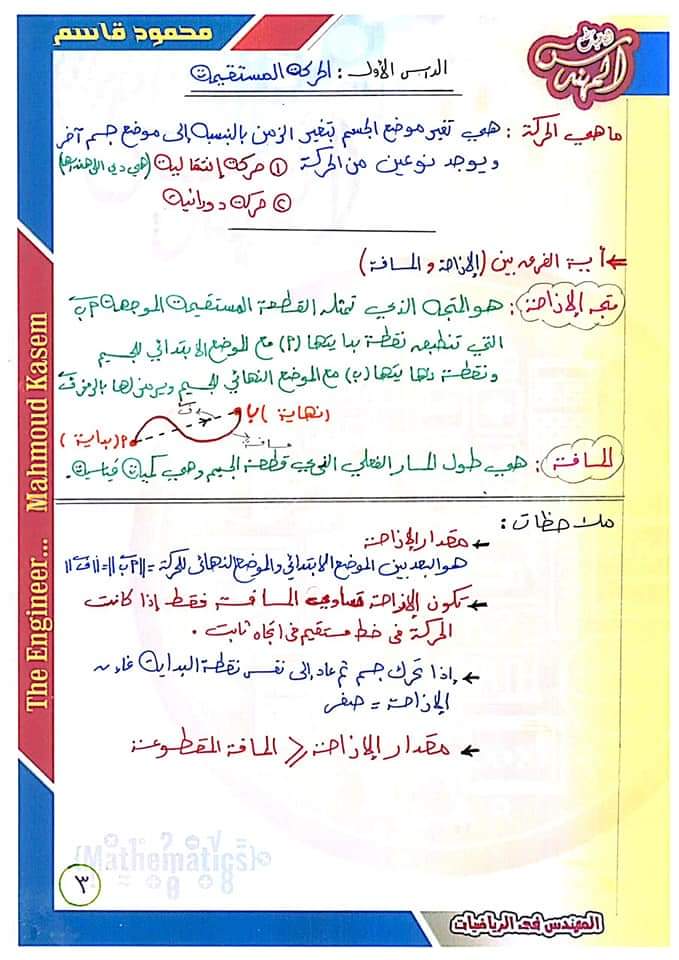 محمود قاسم
المهندس
الدرس الأول : الحركة المستقيمة
ما هي الحركة : هي تغير موضع الجسم بتغير الزمن بالنسبة إلى موضع جسم آخر
ويوجد نوعين من الحركة ① حركة إنتقالية (هي دي اللي هندرسها)
② حركة دورانية
← أ بين الفرق بين (الإزاحة و المسافة)
متجه الإزاحة : هو المتجه الذي تمثله القطعة المستقيمة الموجهة أب
التي تنطبق نقطة بدايتها (أ) مع الموضع الابتدائي للجسم
ونقطة نهايتها (ب) مع الموضع النهائي للجسم ويرمز لها بالرمز ف
ب (نهاية)
ف
أ (بداية)
مسافة
المسافة : هي طول المسار الفعلي الذي قطعة الجسم وهي كميات قياسية .
ملاحظات :
← مقدار الإزاحة
هو البعد بين الموضع الابتدائي والموضع النهائي للحركة = ||أب|| = ||ف||
← تكون الإزاحة تساوي المسافة فقط إذا كانت
الحركة فى خط مستقيم فى اتجاه ثابت .
← إذا تحرك جسم ثم عاد إلى نفس نقطة البداية فإن
الإزاحة = صفر
← مقدار الإزاحة ⩽ المسافة المقطوعة
The Engineer... Mahmoud Kasem
{Mathematics}
٣
المهندس فى الرياضيات